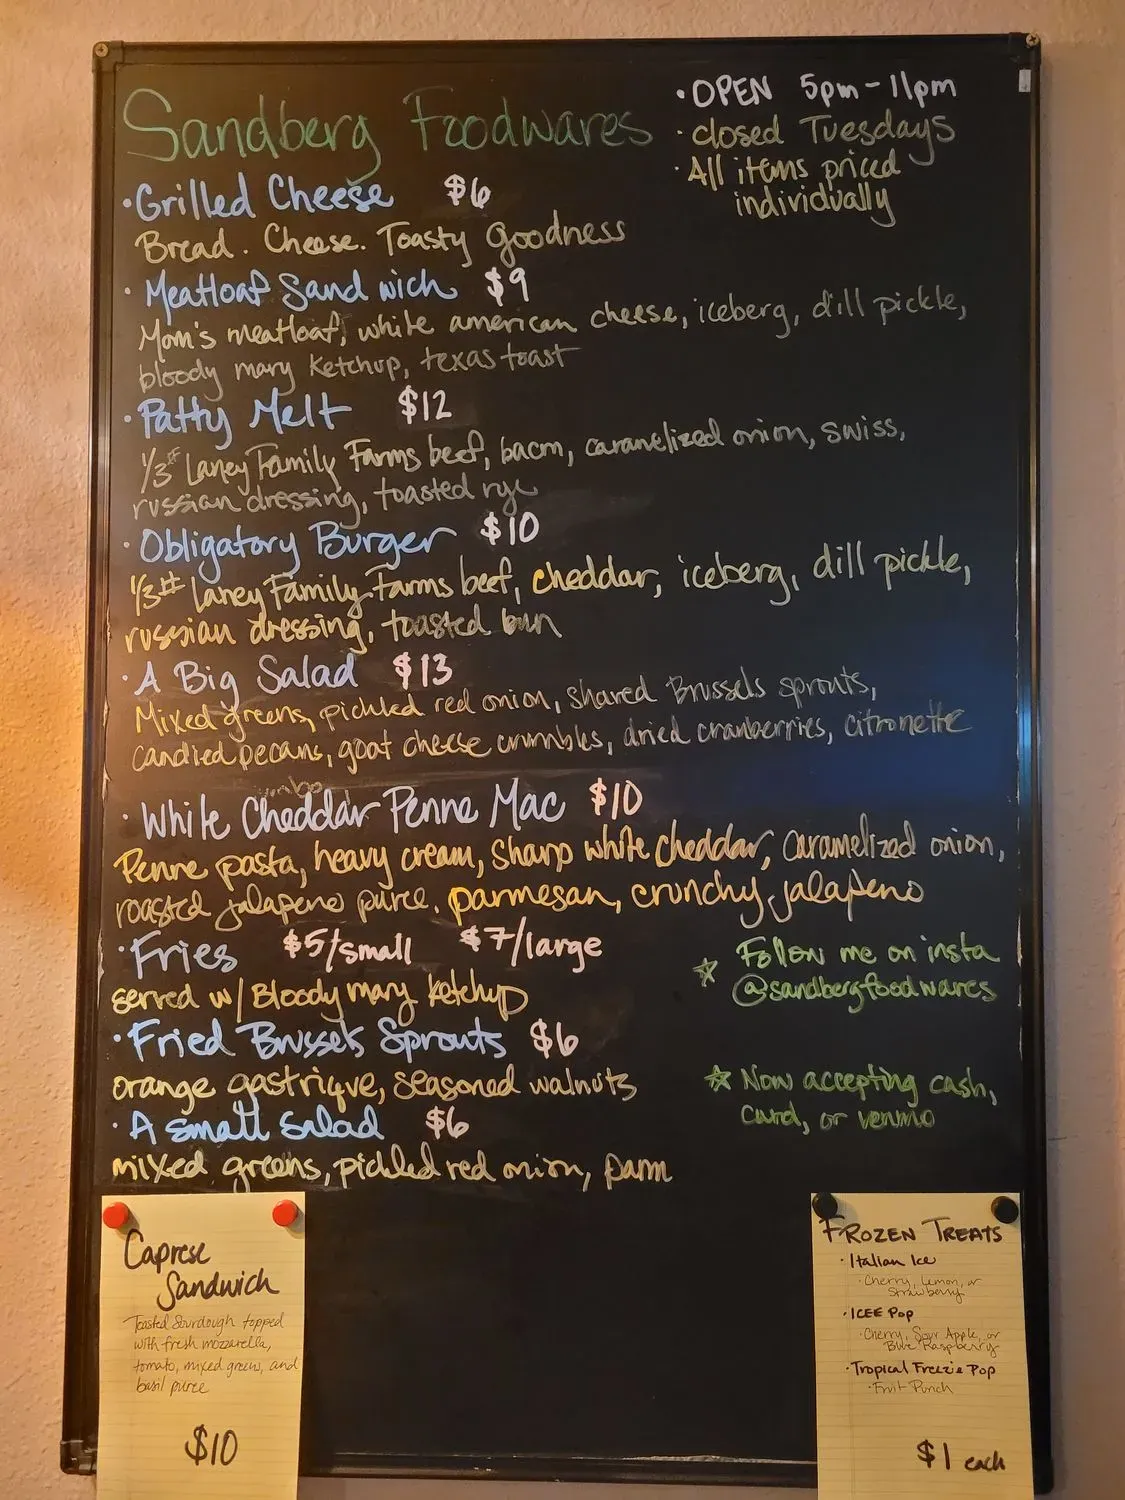 Sandberg Foodwares
• OPEN 5pm-11pm
• closed Tuesdays
• All items priced
individually
• Grilled Cheese $6
Bread. Cheese. Toasty Goodness
• Meatloaf Sandwich $9
Mom's meatloaf, white american cheese, iceberg, dill pickle,
bloody mary ketchup, texas toast
• Patty Melt $12
1/3# Laney Family Farms beef, bacon, caramelized onion, swiss,
russian dressing, toasted rye
• Obligatory Burger $10
1/3# Laney Family Farms beef, cheddar, iceberg, dill pickle,
russian dressing, toasted bun
• A Big Salad $13
Mixed greens, pickled red onion, shared Brussels sprouts,
candied pecans, goat cheese crumbles, dried cranberries, citronette
• White Cheddar Penne Mac $10
Penne pasta, heavy cream, sharp white cheddar, caramelized onion,
roasted jalapeno puree, parmesan, crunchy jalapeno
• Fries $5/small $7/large
served w/ Bloody mary ketchup
☆ Follow me on insta
@sandbergfoodwares
• Fried Brussels Sprouts $6
orange gastrique, seasoned walnuts
☆ Now accepting cash,
card, or venmo
• A small salad $6
mixed greens, pickled red onion, parm
Caprese
Sandwich
Toasted Sourdough topped
with fresh mozzarella,
tomato, mixed greens, and
basil puree
$10
FROZEN TREATS
• Italian Ice
• Cherry, Lemon, or
Strawberry
• ICEE Pop
• Cherry, Sour Apple, or
Blue Raspberry
• Tropical Freezie Pop
• Fruit Punch
$1 each